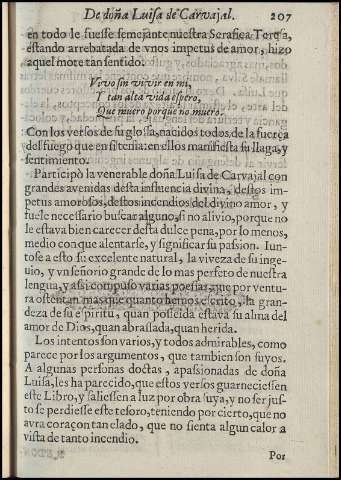 De doña Luisa de Carvajal. 207
en todo le fuesse semejante nuestra Serafica Teresa,
estando arrebatada de vnos impetus de amor, hizo
aquel mote tan sentido.
Vivo sin vivir en mi,
Y tan alta vida espero,
Que muero porque no muero.
Con los versos de su glossa, nacidos todos de la fuerça
del fuego que en si tenia: en ellos manifiesta su llaga, y
sentimiento.
Participò la venerable doña Luisa de Carvajal con
grandes avenidas desta influencia divina, destos im
petus amorosos, destos incendios del divino amor, y
fuele necessario buscar alguno, si no alivio, porque no
le estava bien carecer desta dulce pena, por lo menos,
medio con que alentarse, y significar su passion. Iun-
tose a esto su excelente natural, la viveza de su inge-
nio, y vn señorio grande de lo mas perfeto de nuestra
lengua, y assi compuso varias poesias, que por ventu
ra ostentan mas que quanto hemos escrito, la gran
deza de su espiritu, quan posseida estava su alma del
amor de Dios, quan abrassada, quan herida.
Los intentos son varios, y todos admirables, como
parece por los argumentos, que tambien son suyos.
A algunas personas doctas, apassionadas de doña
Luisa, les ha parecido, que estos versos guarneciessen
este Libro, y saliessen a luz por obra suya, y no ser jus-
to se perdiesse este tesoro, teniendo por cierto, que no
avra coraçon tan elado, que no sienta algun calor a
vista de tanto incendio.
Por